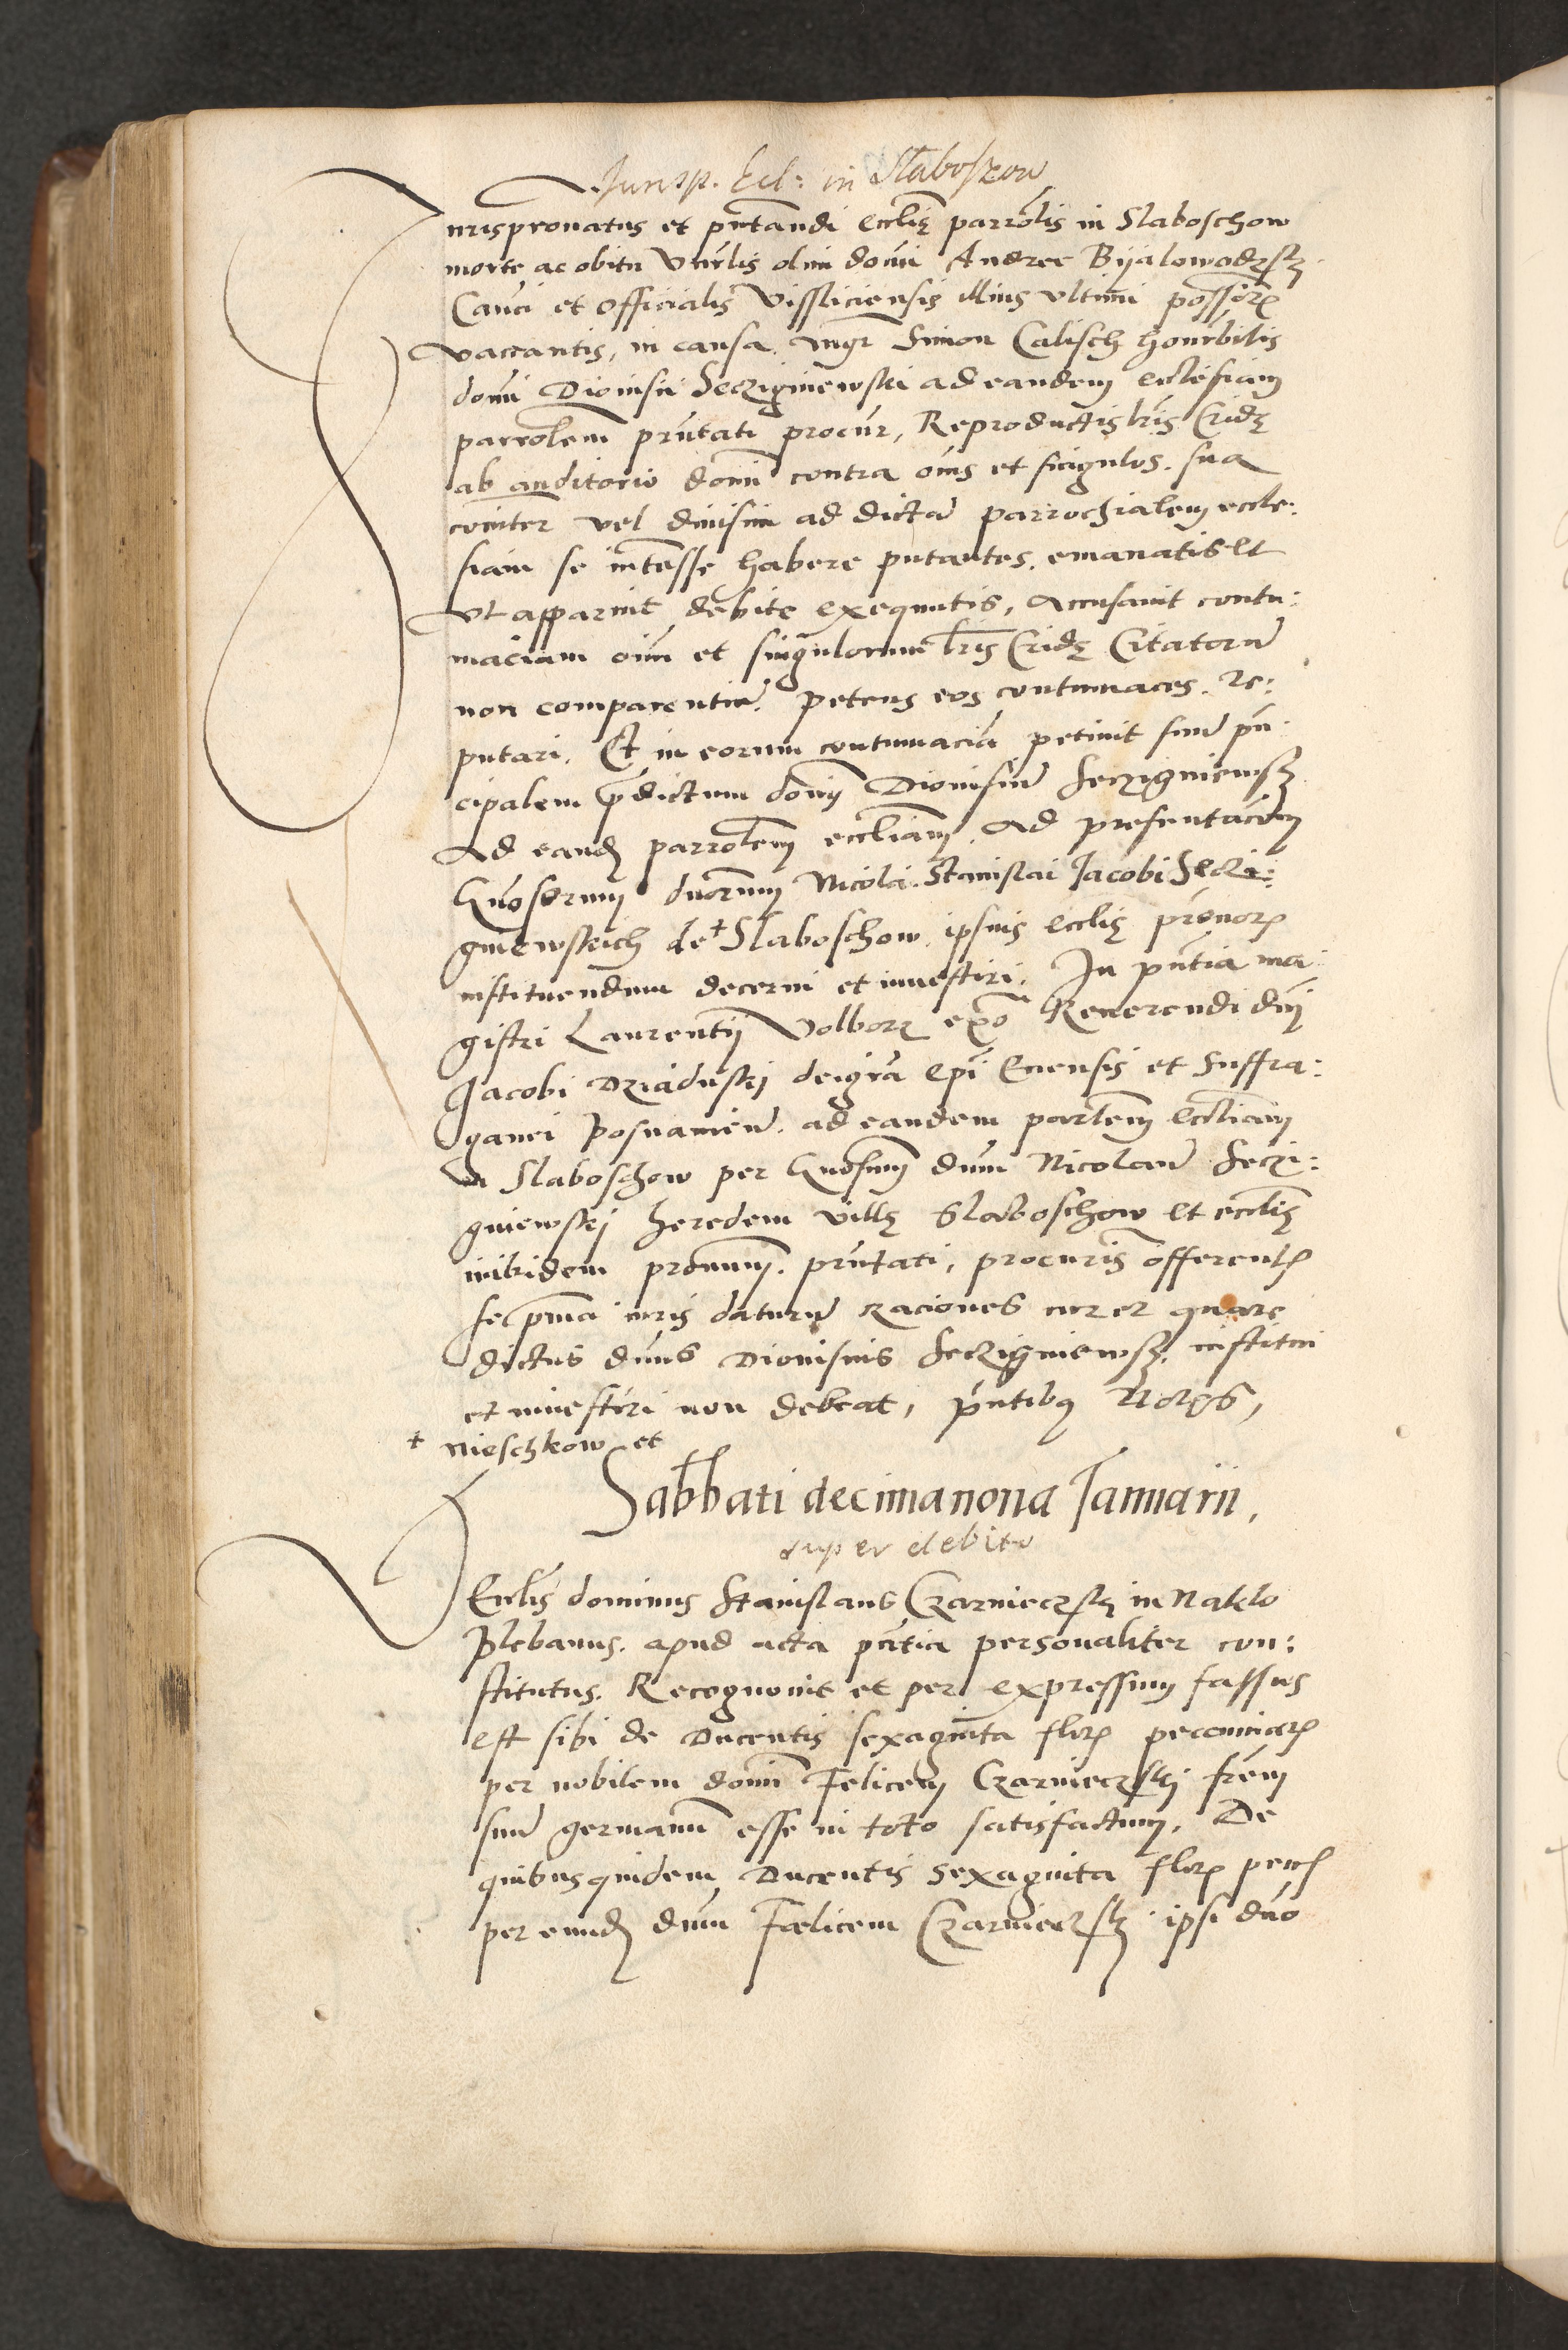 Jurisp. Eccl: in Slaboszow
Jurispronatus et pñtandi ecclię parrolis in Slaboschow
morte ac obitu Vnrlis olim domi Andree Bijalowadzskį
Canci et officialis Vissliciensis illius vltimi possorꝫ
vaccantis, in causa. mgr Simon Calisch honorbilis
domi Dionisii Secziginiewski ad eandem ecclesiam
parrolem pñtati procur, Reproductis lris Cridę
ab auditorio domi contra oms et singulos. sua
cointer vel diuisim ad dictã parrochialem eccle:
siam se interesse habere putantes. emanatis et
vt apparuit debite exequutis, Accusauit contu:
maciam oim et singulorum lris Cridę Citatorũ
non comparentiũ. petens eos contumaces. re:
putari. Et in eorum contumaciã petiuit suũ pñ
cipalem p̃dictum domĩ Dionisiũ Secziginiewskį
Ad eandẽ parrolem eccliam. Ad presentacõem
Gñosorum dnorum Nicolai. Stanislai Jacobi Seczi:
gniewskich de + Slaboschow. ipsius ecclię pronorꝫ
instituendum decerni et inuestiri. In pñtia ma
gistri Laurentij Volborz expo Reuerendi dñi
Jacobi Dziaduskj dei grã epi Enensis et Suffra:
ganei Posnanien. ad eandem parlem eccliam
in Slaboschow per Gñosum dnum Nicolaũ Seczi:
gniewskj heredem villę Slaboschow et ecclię
inibidem pronum. pñtati, procuris offerentꝫ
se p̃ma iuris daturũ raciones cur et quare
dictus dnus Dionisius Secziginiewskį. institui
et inuestiri non debeat, pñtibꝫ Norꝫs,
+ Nieschkow et
Sabbati decimanona Januarii,
super debito
Vnrlis dominus Stanislaus Czarnieczskį in Naklo
Plebanus. apud acta pñtia personaliter con:
stitutus. Recognouit et per expressum fassus
est sibi de Ducentis sexaginta florꝫ pecuniarꝫ
per nobilem domi Felicem Czarnieczskj frem
suũ germanũ esse in toto satisfactum, De
quibus quidem Ducentis sexaginta florꝫ pecuꝫ
per eundẽ dnum Fælicem Czarnieczskį ipsi dño